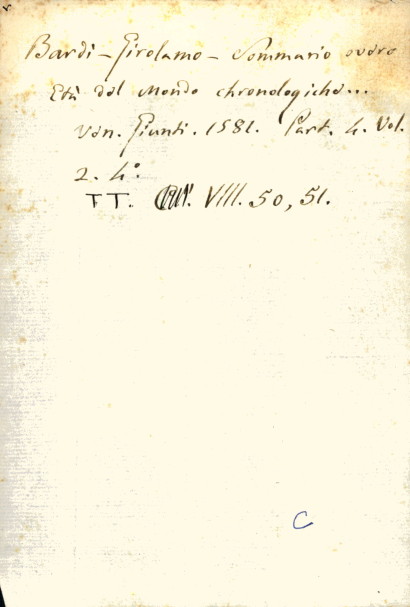 Bardi - Girolamo - Sommario overo
Età del Mondo chronologiche...
Ven. Giunti. 1581. Part. 4. Vol.
2. 4°.
TT. VIII. 50, 51.
C